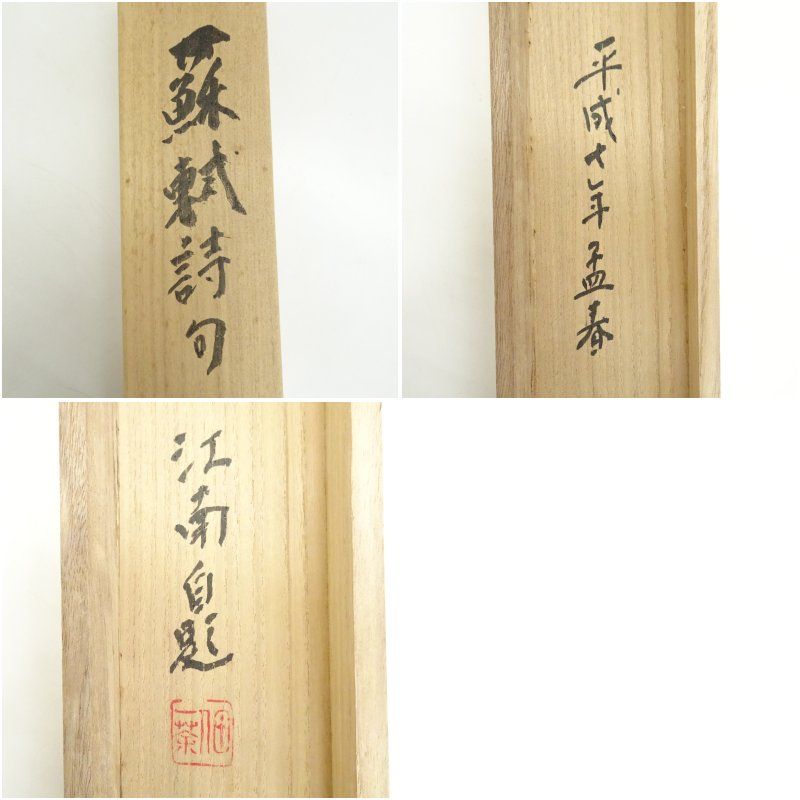 蘇軾詩句
平成七年孟春
江南自題